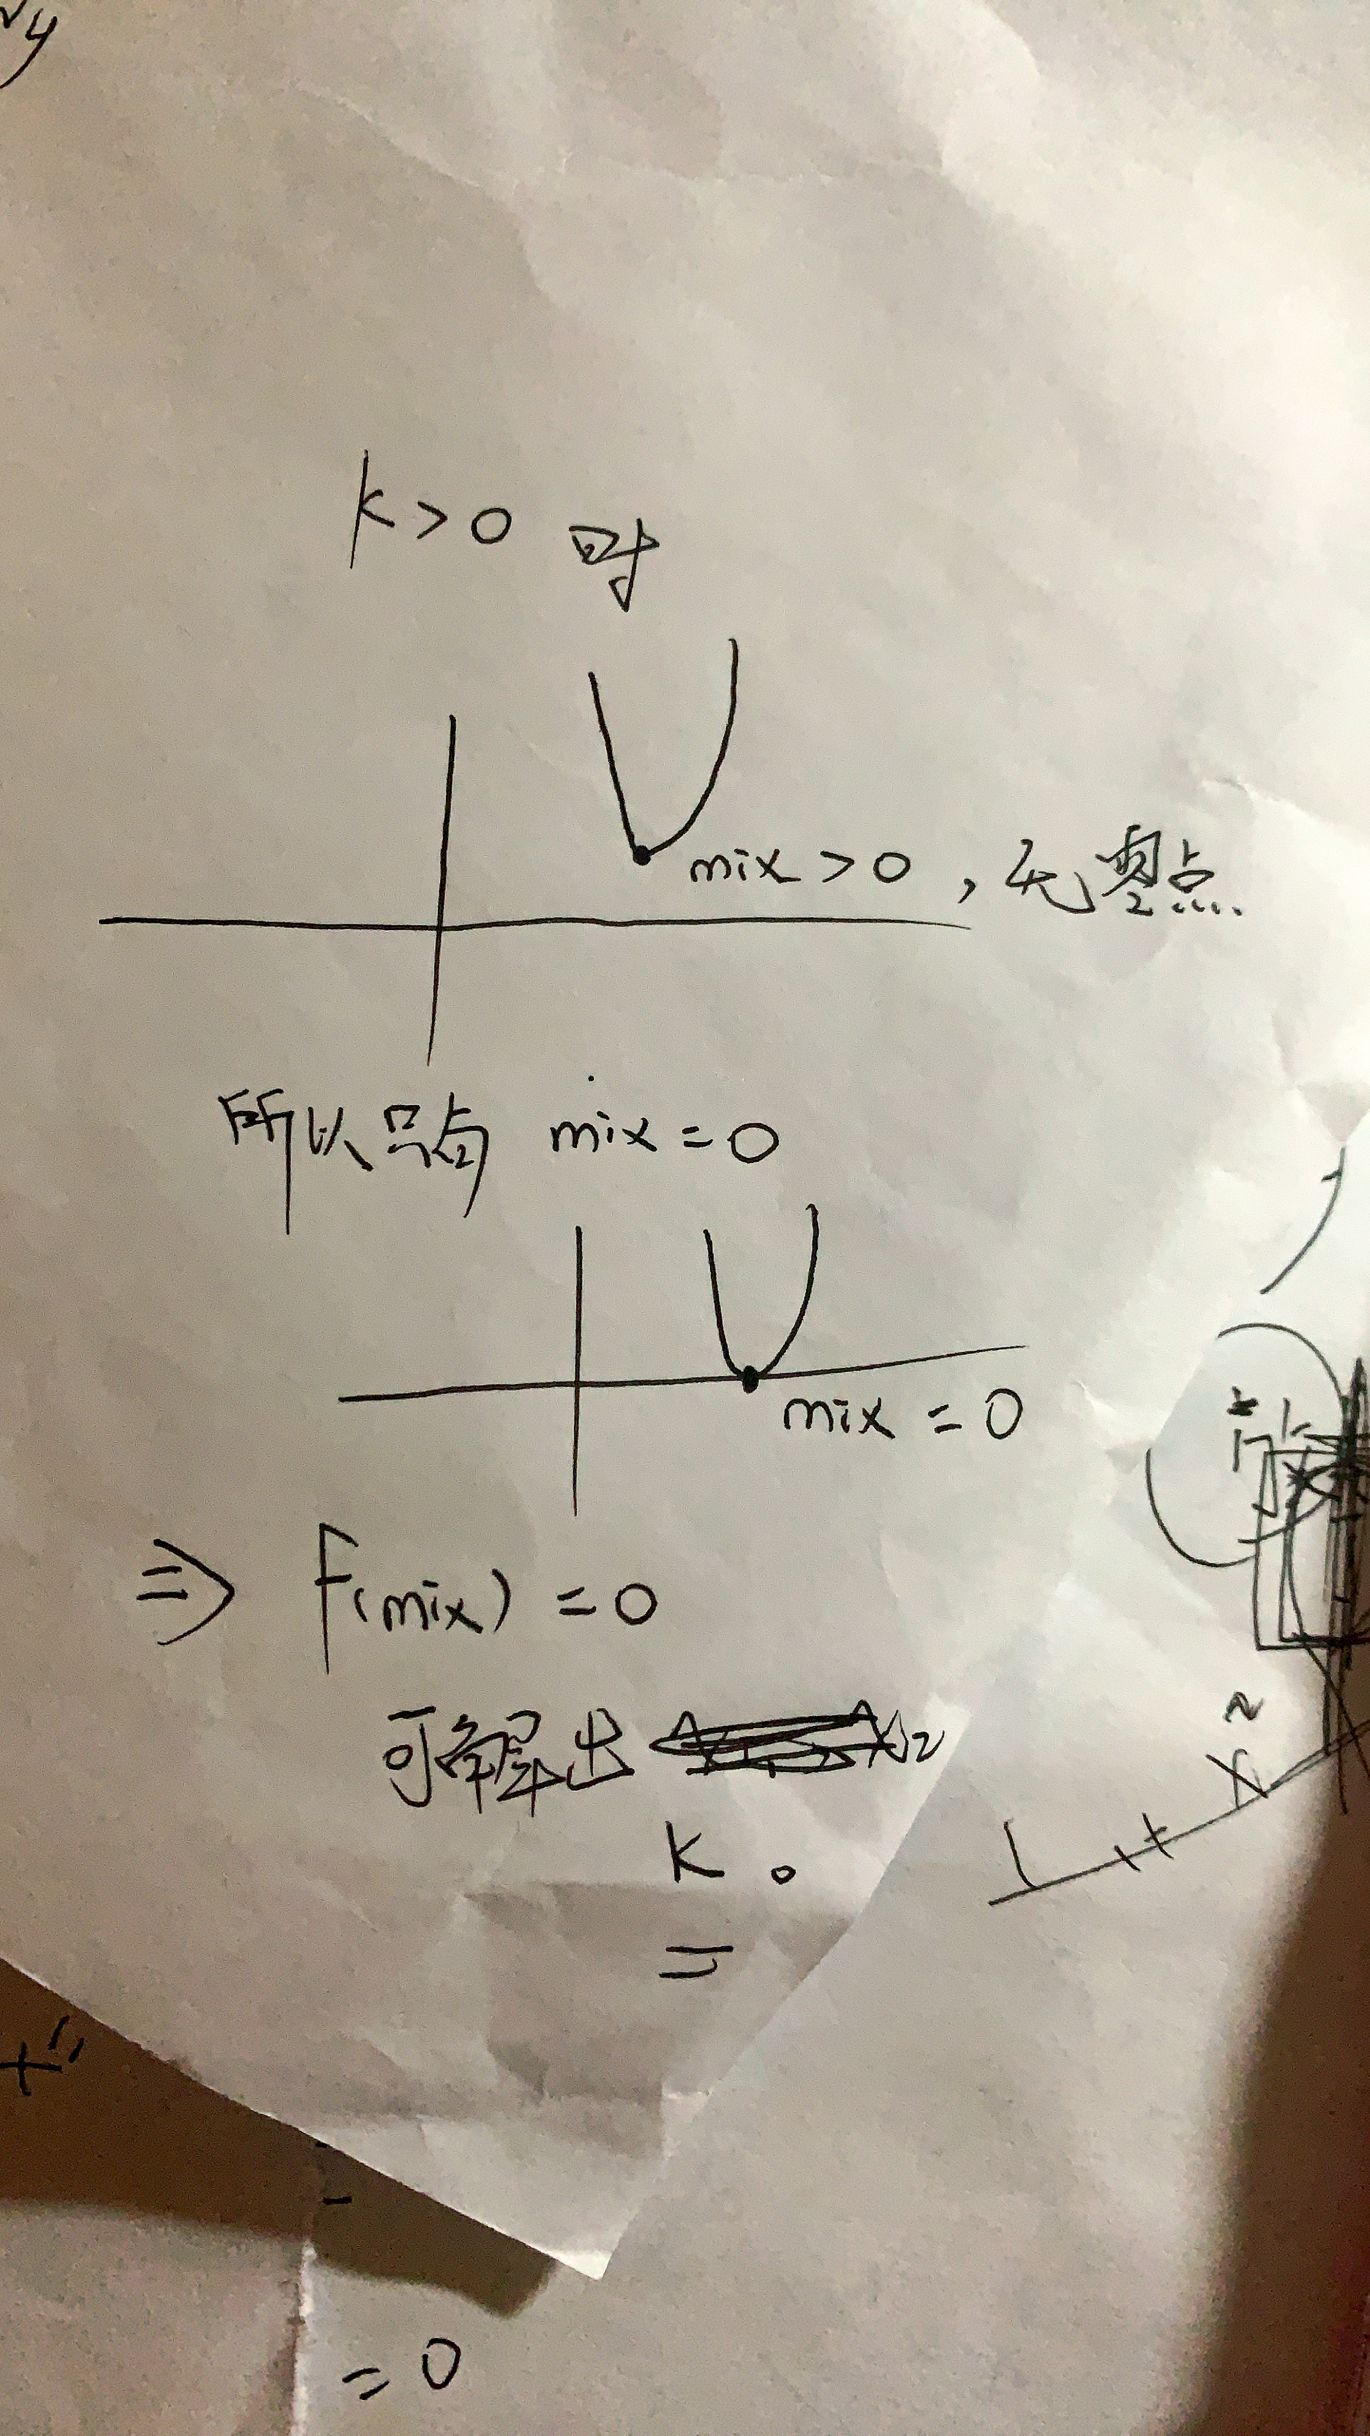 y
k > 0 时
mix > 0 , 无零点
所以只有 mix = 0
mix = 0
⇒ f(mix) = 0
可解出
K 。
= 0